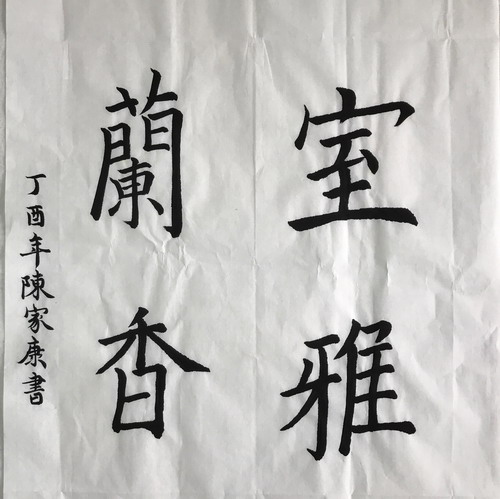 室雅
蘭香
丁酉年陳家康書